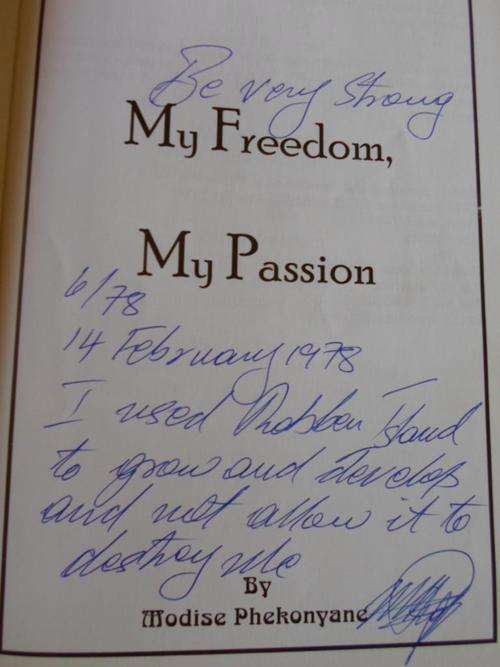 Be very strong
My Freedom,
My Passion
6/78
14 February 1978
I used Robben Island
to grow and develop
and not allow it to
destroy me
By
Modise Phekonyane